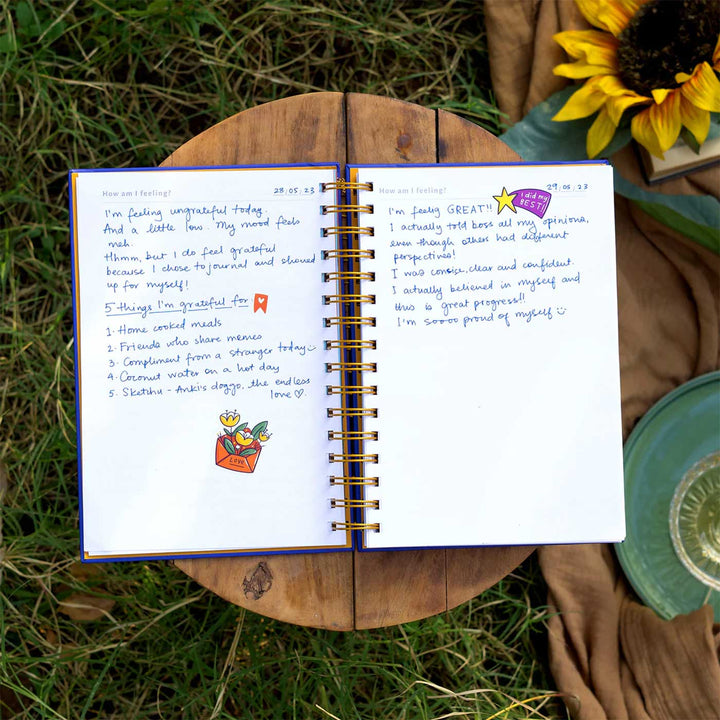 How am I feeling?
28.05.23
I'm feeling ungrateful today.
And a little low. My mood feels
meh.
Hhmm, but I do feel grateful
because I chose to journal and showed
up for myself!
5 things I'm grateful for
1. Home cooked meals
2. Friends who share memes
3. Compliment from a stranger today
4. Coconut water on a hot day
5. Sketchu - Anki's doggo, the endless
love ♡.
Love
How am I feeling?
29.05.23
I did my
BEST!
I'm feelig GREAT!!
I actually told boss all my opinions,
even though others had different
perspectives!
I was concise, clear and confident.
I actually believed in myself and
this is great progress!!
I'm soooo proud of myself ☺